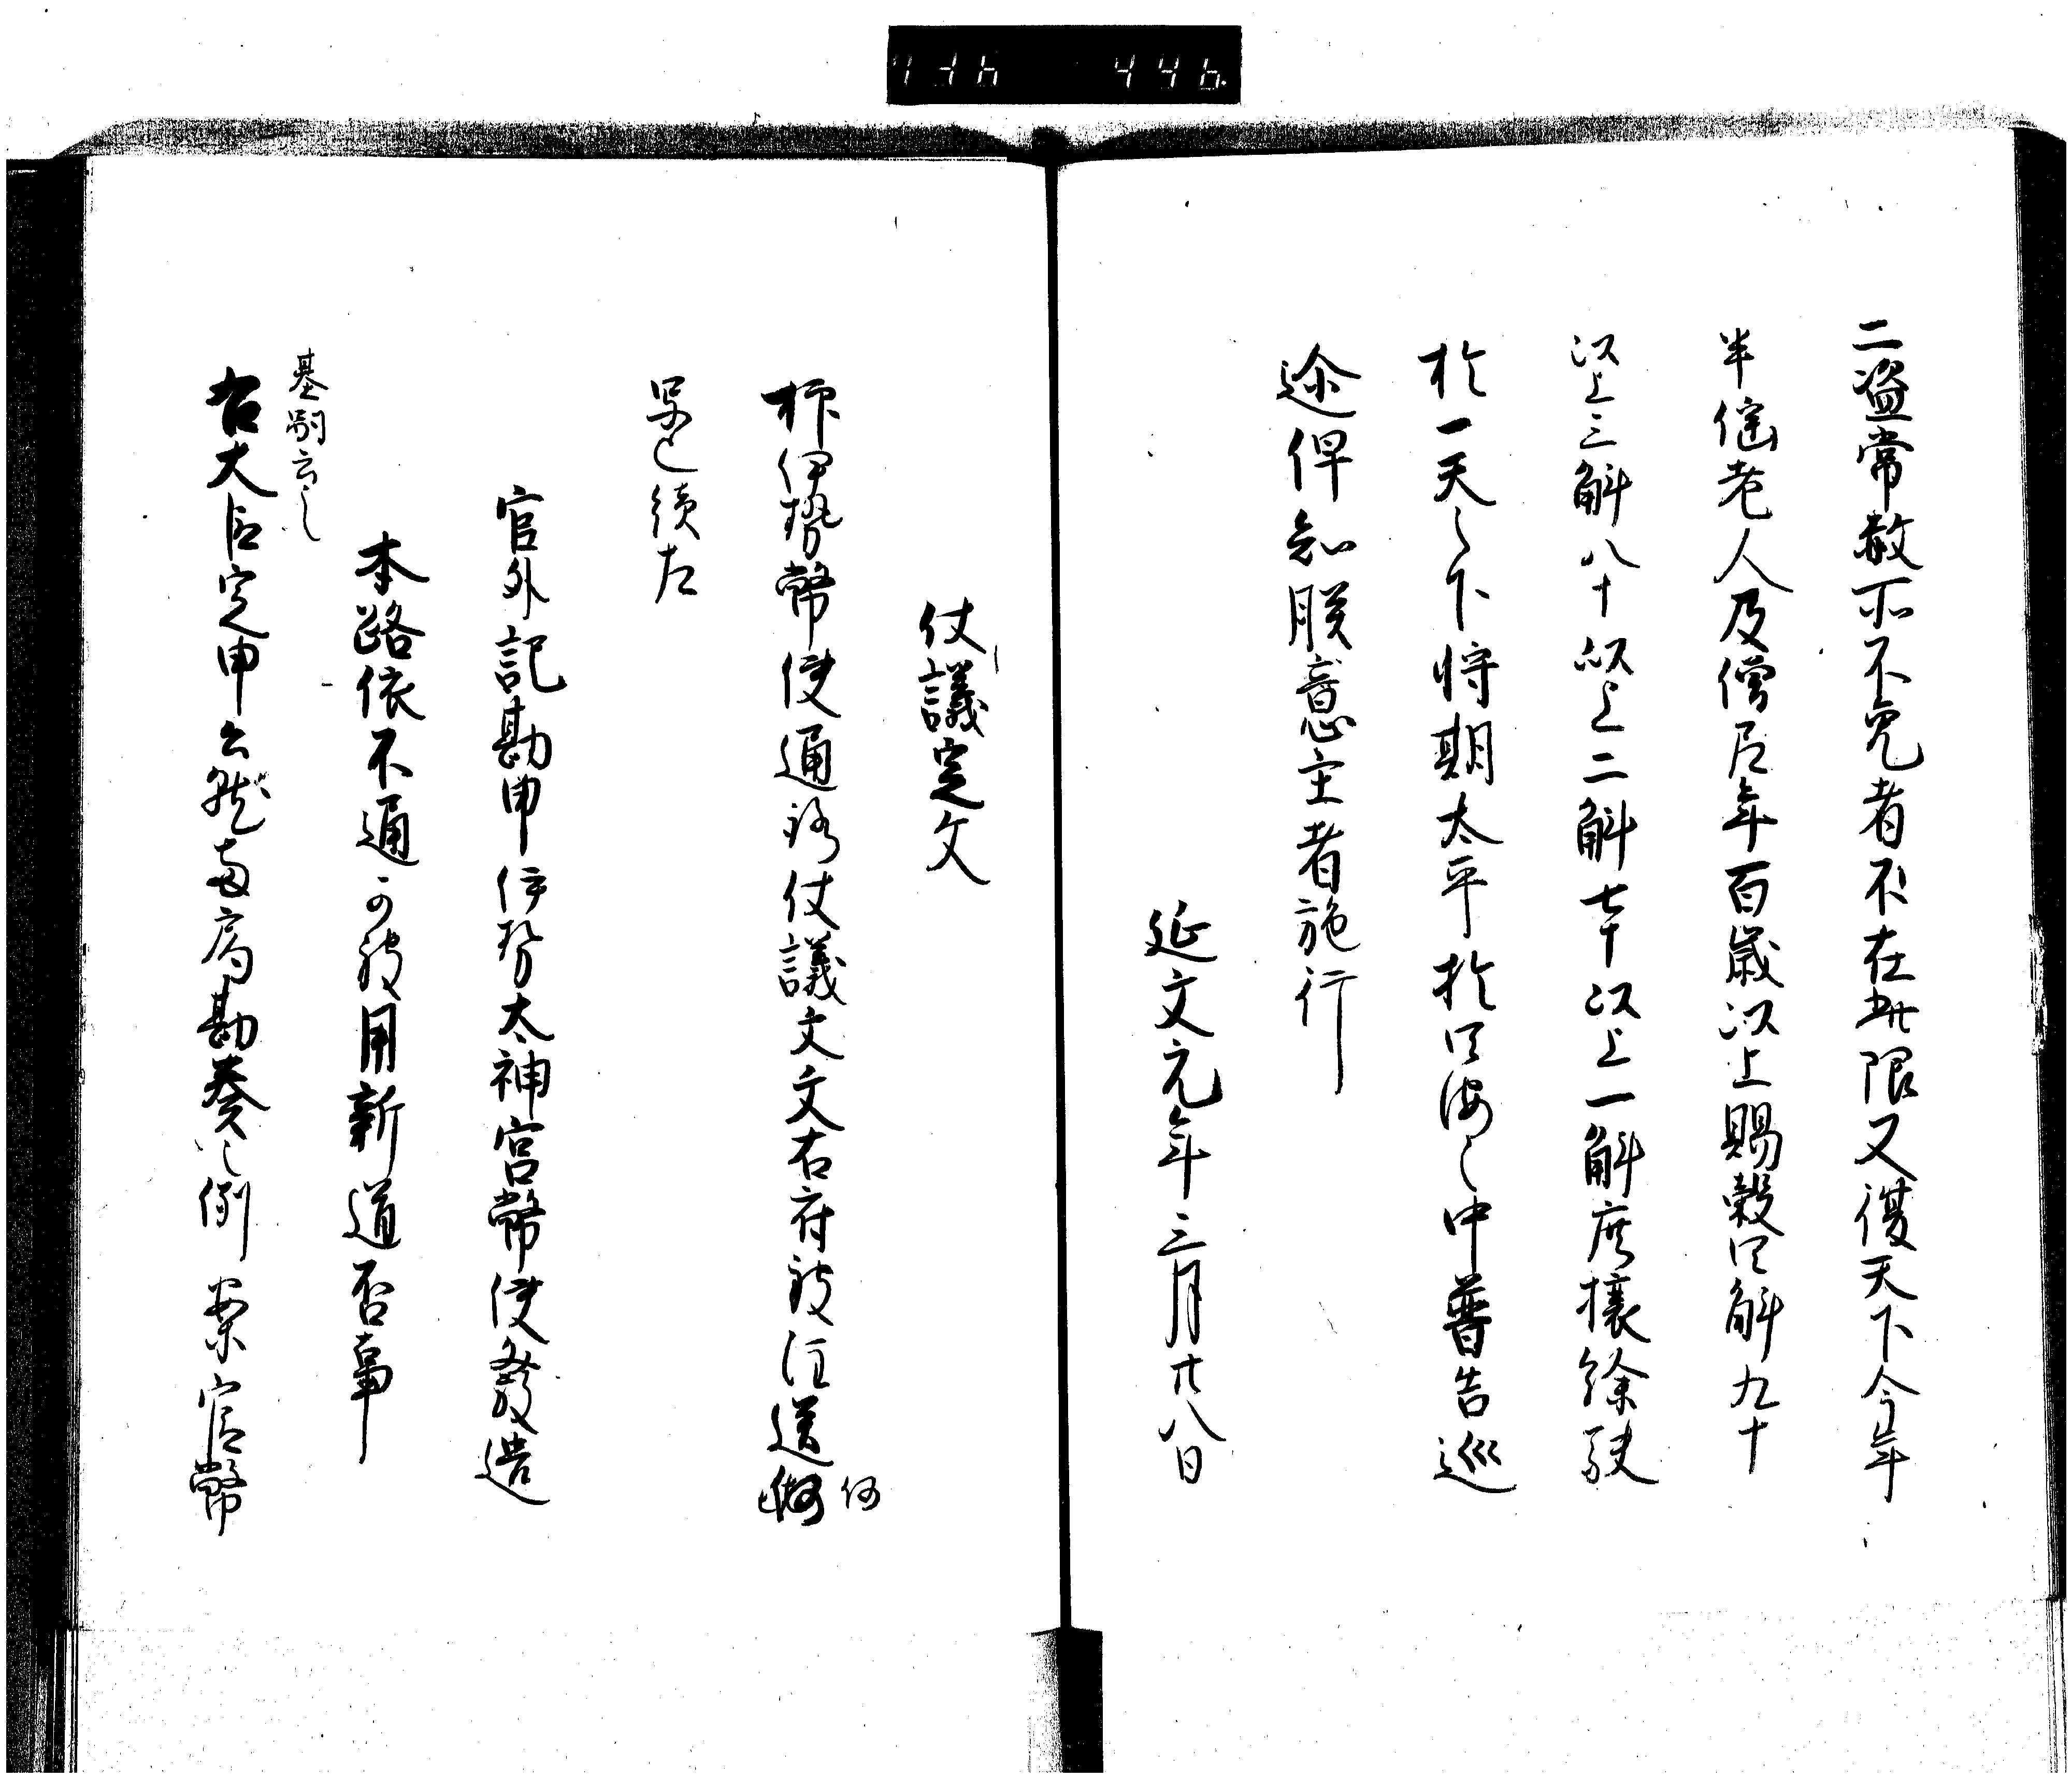 二盗常赦所不免者不在此限又復天下今年
半徭老人及僧尼年百歳以上賜穀四斛九十
以上三斛八十以上二斛七十以上一斛庶攘綷駛
於一天之下将期太平於四海之中普告遐
迩俾知朕意主者施行
延文元年三月廿八日
仗議定文
抑伊勢幣使通路仗議文文右府被注送
何
写之続左
官外記勘申伊勢太神宮幣使発遣
本路依不通可被用新道否事
基嗣云々
右大臣定申云就両局勘奏之例案官幣